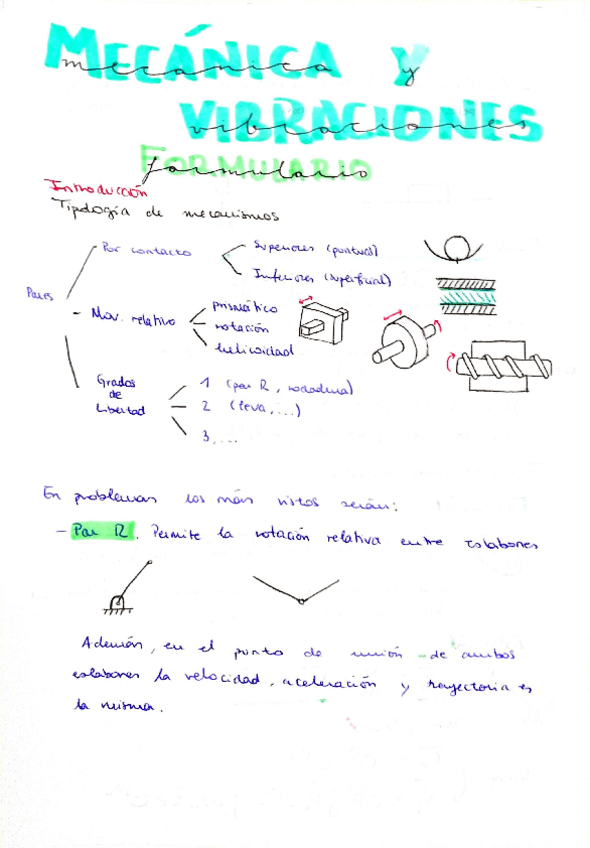 MECÁNICA Y
mecánica y
VIBRACIONES
vibraciones
FORMULARIO
formulario
Introducción
Tipología de mecanismos
Pares
Por contacto
Superiores (puntual)
Inferiores (superficial)
Mov. relativo
prismático
rotación
helicoidal
Grados
de
Libertad
1 (par R, rodadura)
2 (leva, ...)
3, ...
En problemas los más vistos serán:
- Par R. Permite la rotación relativa entre eslabones
Además, en el punto de unión de ambos
eslabones la velocidad, aceleración y trayectoria es
la misma.